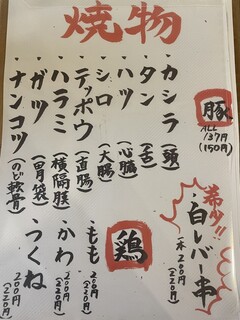 焼物
豚
ALL
137円
(150円)
・カシラ(頭)
・タン(舌)
・ハツ(心臓)
・シロ(大腸)
・テッポウ(直腸)
・ハラミ(横隔膜)
・ガツ(胃袋)
・ナンコツ(のど軟骨)
希少!!
白レバー串
一本 200円
(220円)
鶏
・もも 200円
(220円)
・かわ 200円
(220円)
・つくね 200円
(220円)